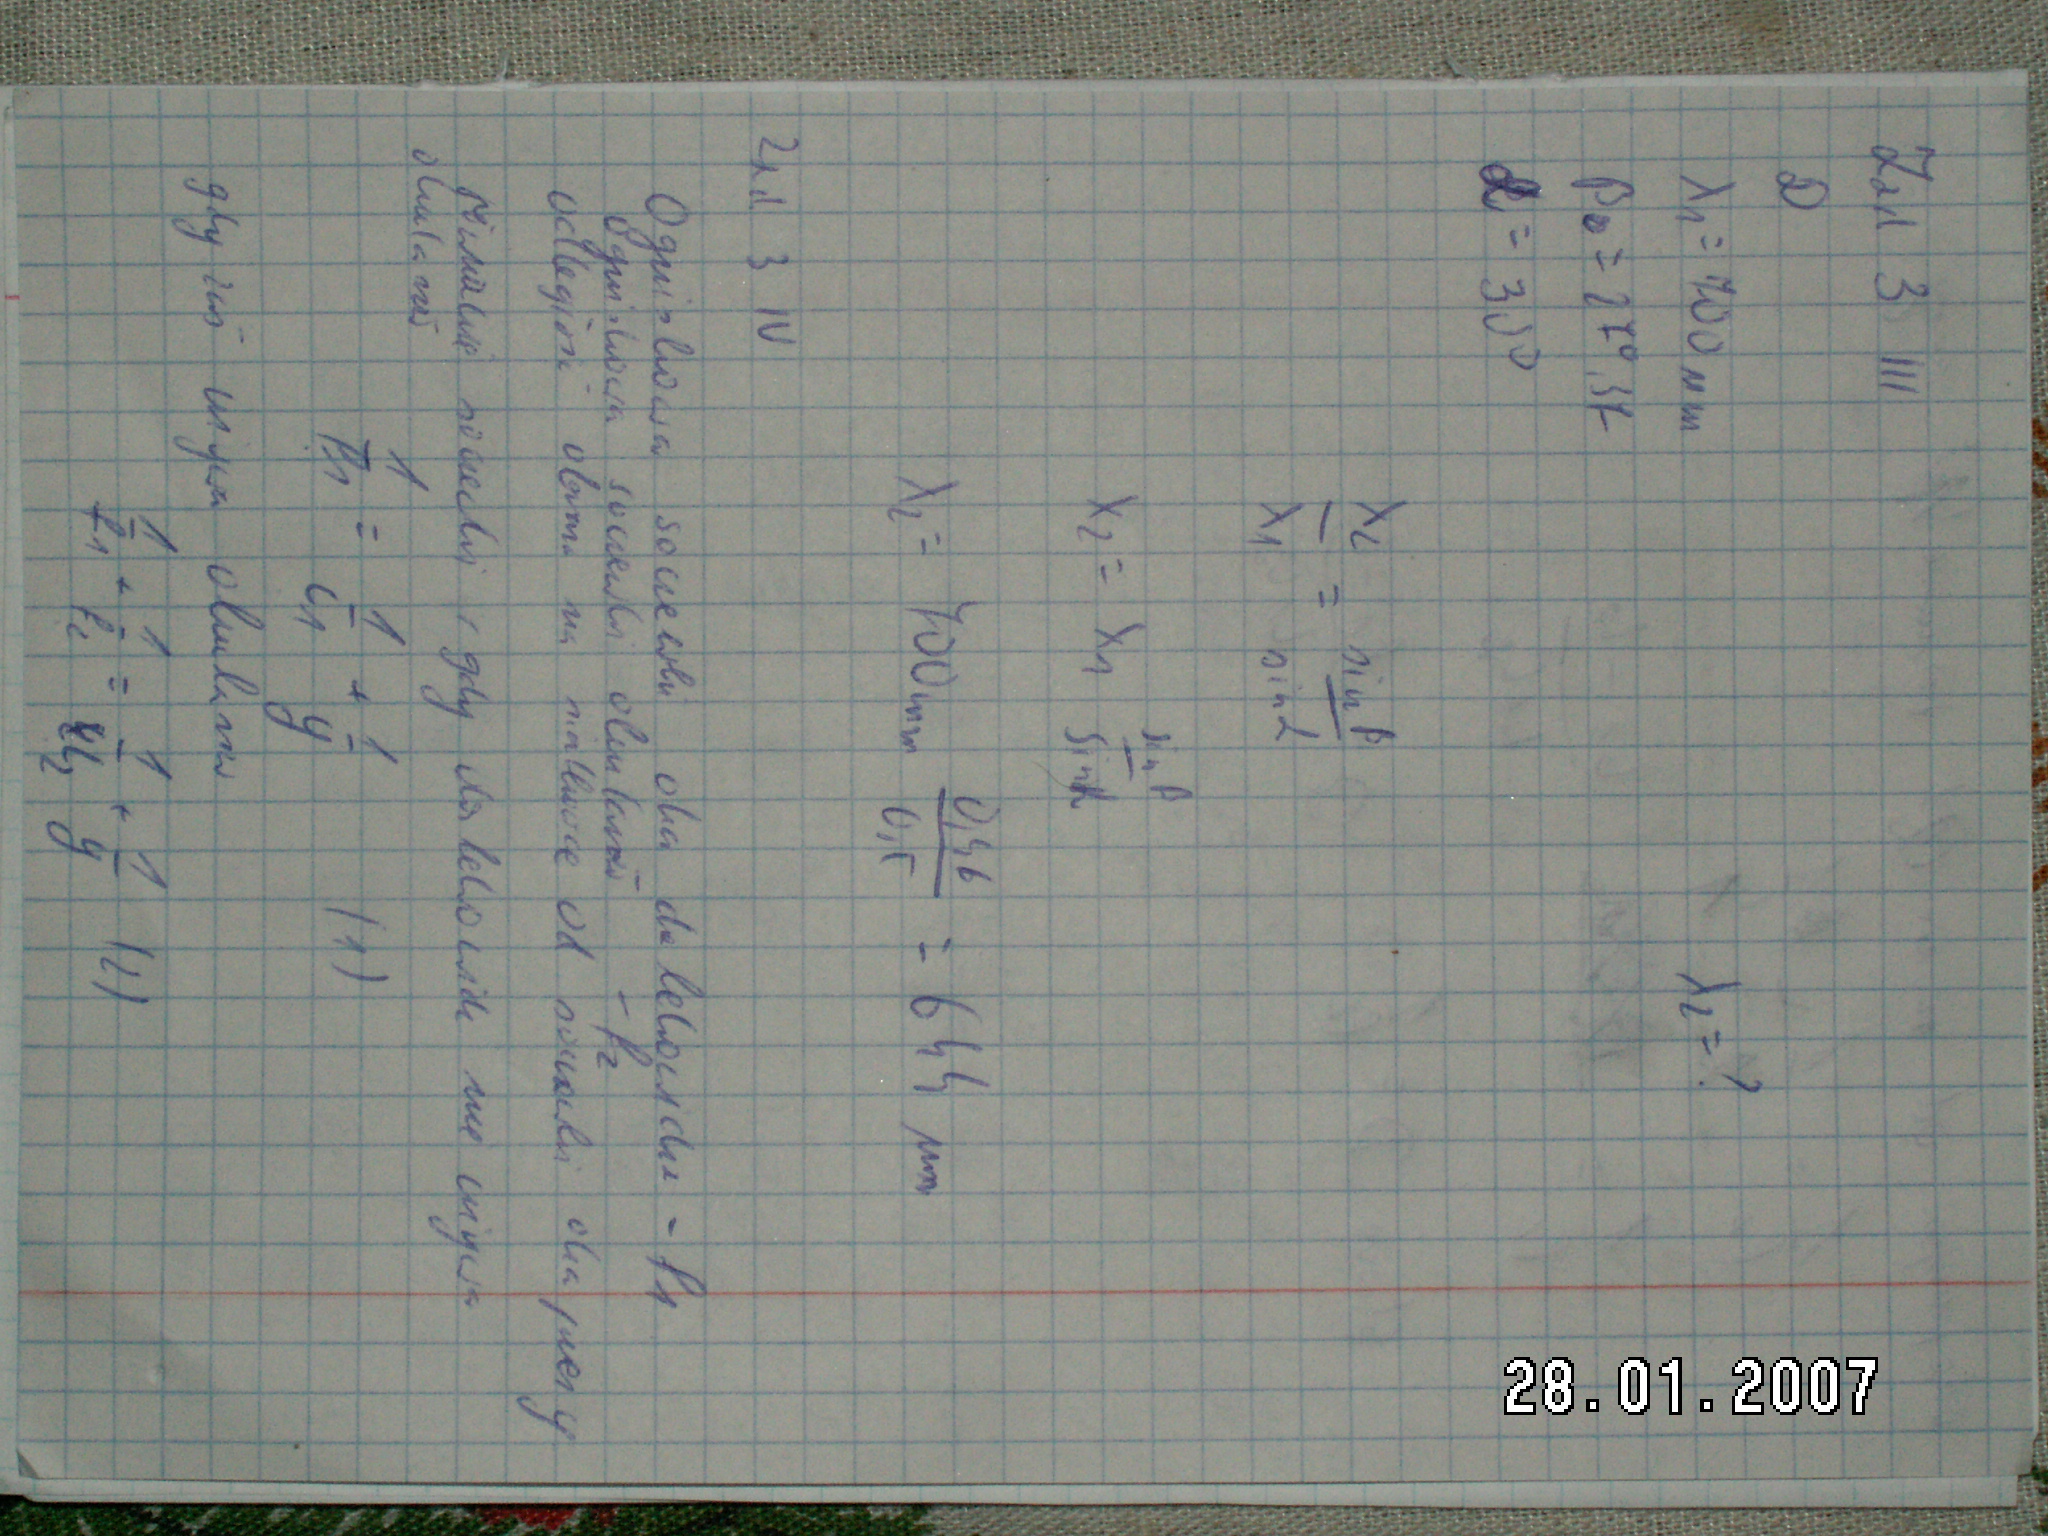 Zad 3 III
D
λ1 = 700 nm λ2 = ?
β = 27°,37
α = 30°
λ2 / λ1 = sin β / sin α
λ2 = λ1 sin β / sin α
λ2 = 700 nm 0,46 / 0,5 = 644 nm
Zad 3 IV
Ogniskowa soczewki oka dalekowidza - f1
Ogniskowa soczewki okularów - f2
odległość obrazu na siatkówce od soczewki oka = y
Równanie soczewki, gdy dalekowidz nie używa
okularów
1/f1 = 1/d1 + 1/y (1)
gdy używa okularów
1/f1 + 1/f2 = 1/d2 + 1/y (2)
28.01.2007